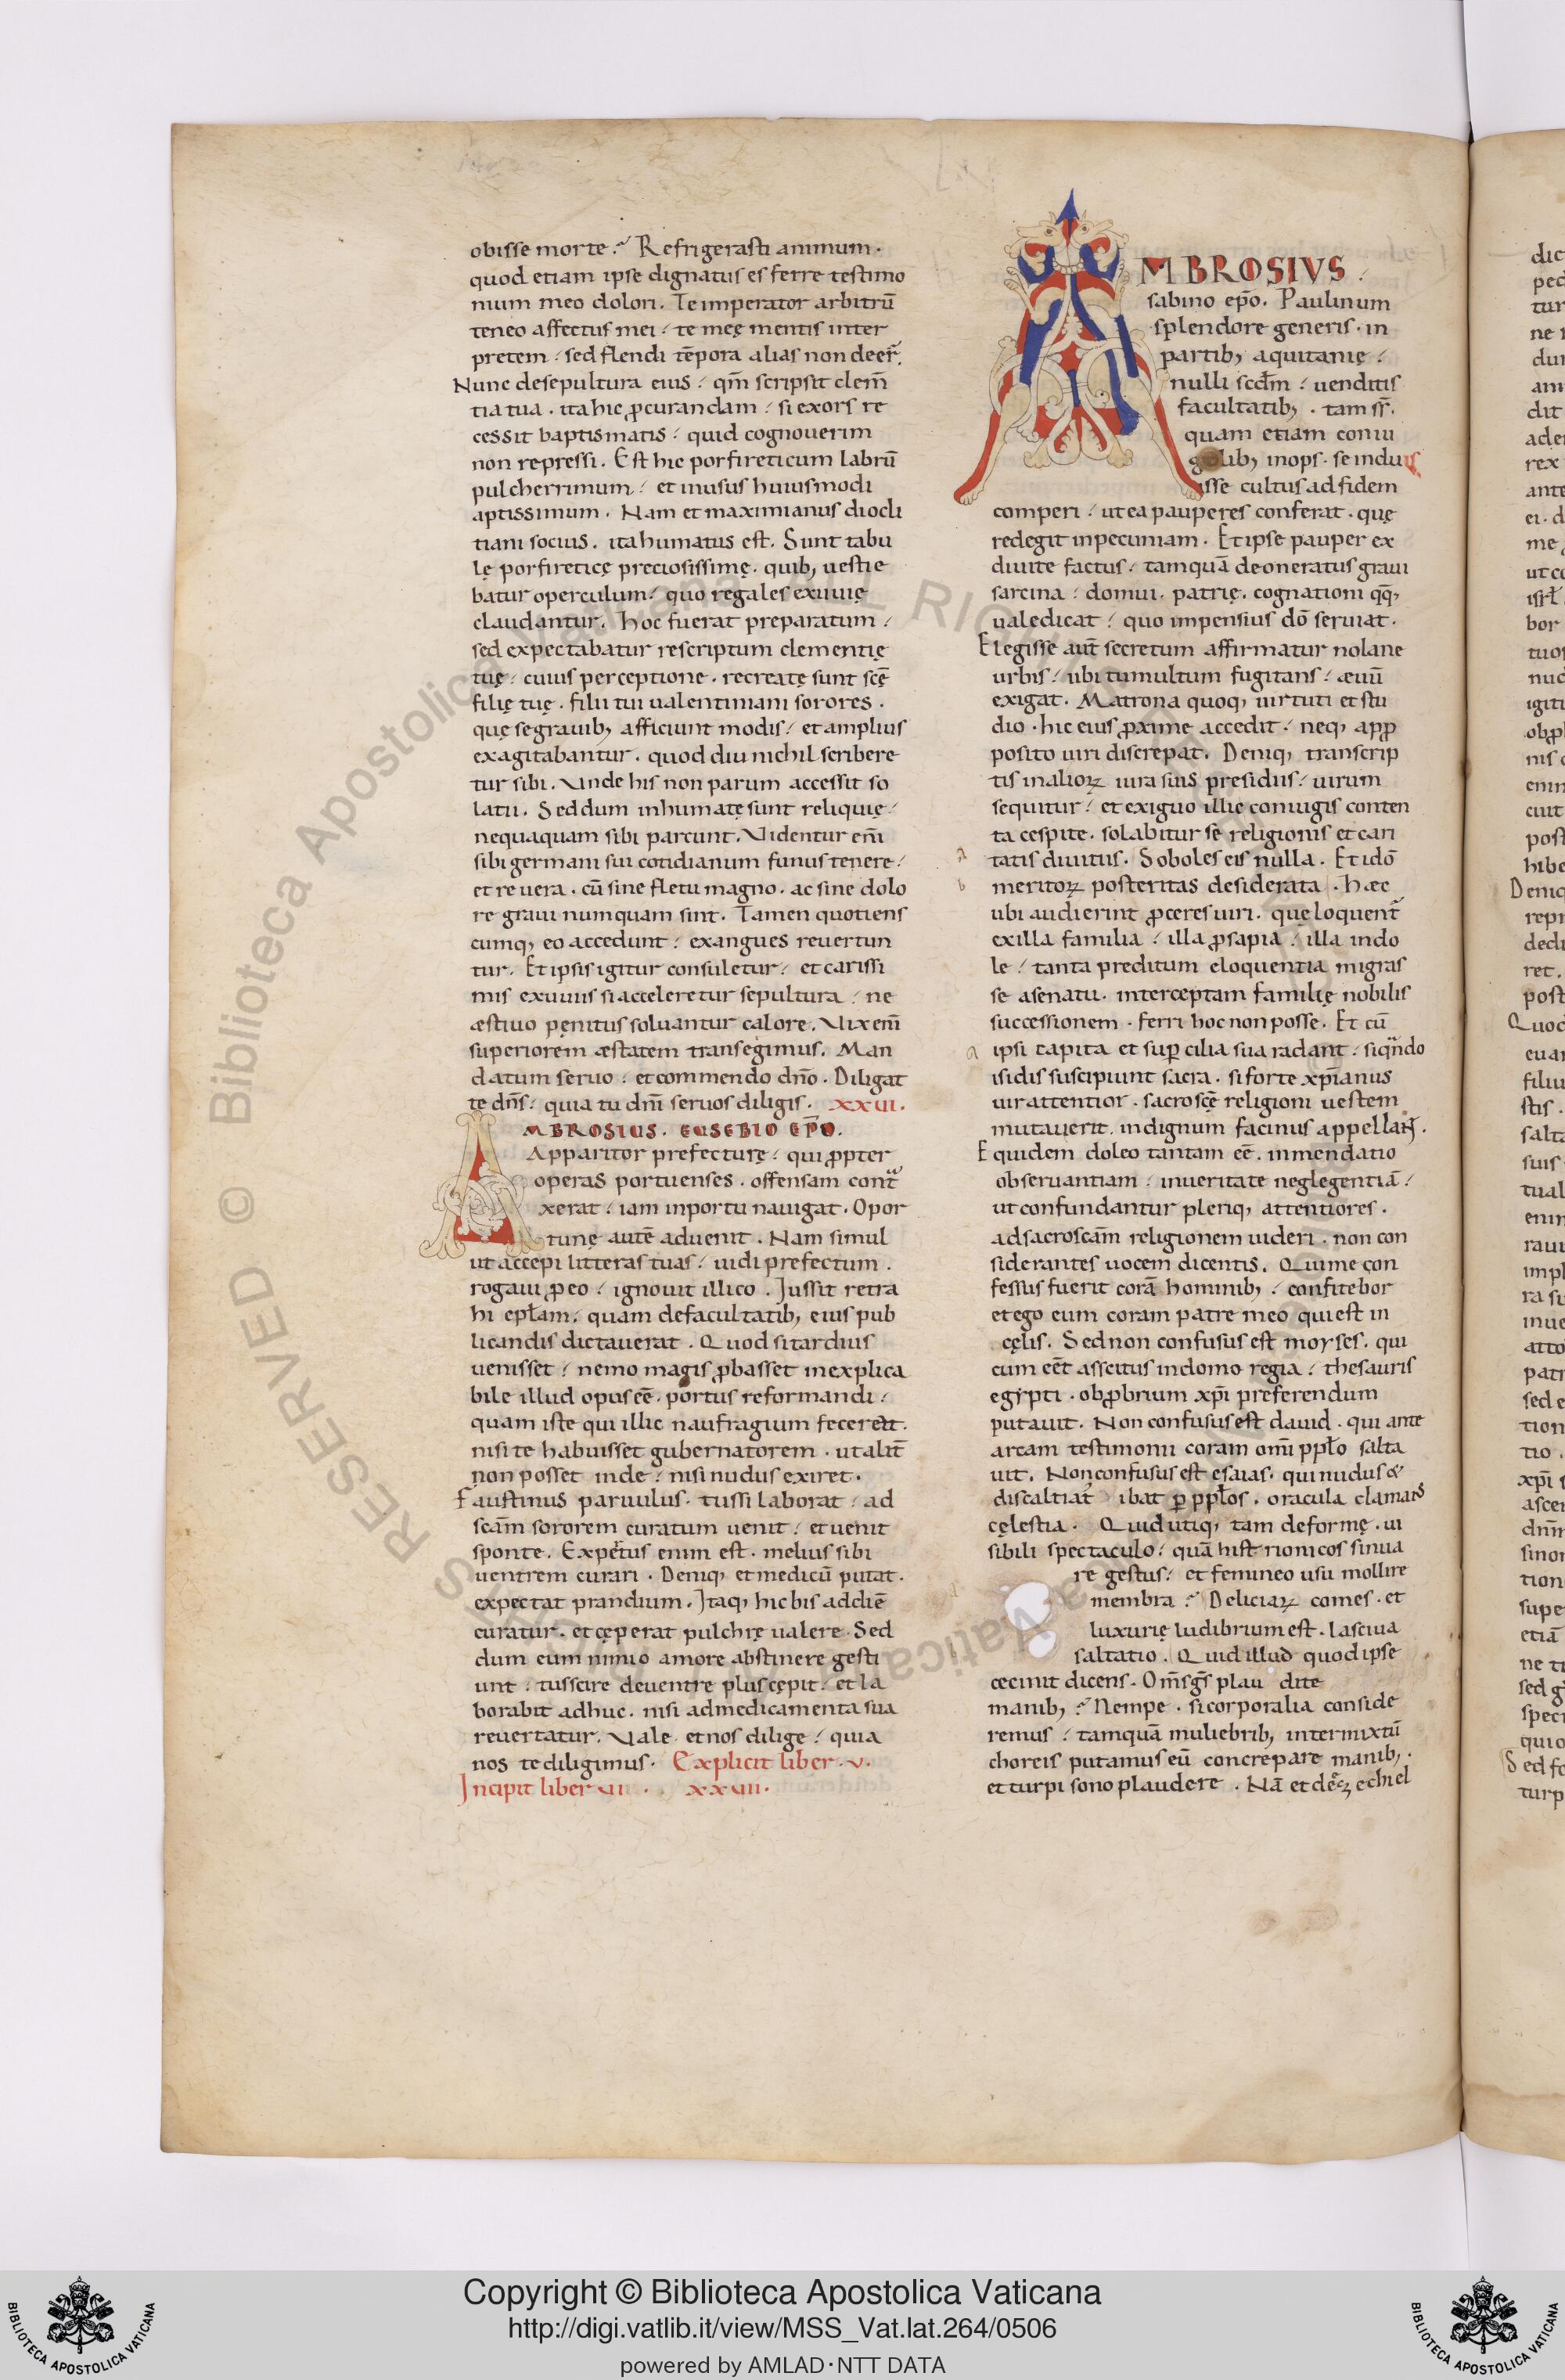 obisse morte .᷉ Refrigerasti animum .
quod etiam ipse dignatus es ferre testimo
nium meo dolori. Te imperator arbitrū
teneo affectus mei / te meę mentis inter
pretem / sed flendi tēpora alias non deer̄.
Nunc de sepultura eius / qm̄ scripsit clem̄
tia tua . ita hic ꝓcurandam / si exors re
cessit baptismatis / quid cognouerim
non repressi. Est hic porfireticum labrū
pulcherrimum / et inusus huiusmodi
aptissimum . Nam et maximianus diocli
tiani socius . ita humatus est. Sunt tabu
lę porfireticę preciosissimę . quib; uestie
batur operculum / quo regales exuuię
claudantur. hoc fuerat preparatum /
sed expectabatur rescriptum clementię
tuę / cuius perceptione . recreatę sunt scę̄
filię tuę . filii tui ualentiniani sorores .
quę se grauib; afficiunt modis / et amplius
exagitabantur . quod diu nichil scribere
tur sibi . Unde his non parum accessit so
latii . Sed dum inhumatę sunt reliquię /
nequaquam sibi parcunt. Videntur eni̅
sibi germani sui cotidianum funus tenere /
et re uera . cū sine fletu magno . ac sine dolo
re graui numquam sint . Tamen quotiens
cumq; eo accedunt / exangues reuertun
tur. Et ipsis igitur consuletur / et carissi
mis exuuiis si acceleretur sepultura / ne
æstiuo pęnitus soluantur calore. Vix eni̅
superiorem æstatem transegimus. Man
datum seruo / et commendo dn̄o . Diligat
te dn̄s / quia tu dn̄i seruos diligis . XXVI.
AMBROSIUS . EUSEBIO EP̄O .
Apparitor prefecturę / qui ꝓpter
operas portuenses . offensam contͣ
xerat / iam in portu nauigat. Opor
tunę autē aduenit . Nam simul
ut accepi litteras tuas / uidi prefectum .
rogaui ꝓ eo / ignouit illico . Iussit retra
hi ep̄lam / quam de facultatib; eius pub
licandis dictauerat . Quod si tardius
uenisset / nemo magis ꝓbasset inexplica
bile illud opus eē . portus reformandi /
quam iste qui illic naufragium feceret .
nisi te habuisset gubernatorem . ut alit̄
non posset inde / nisi nudus exiret .
Faustinus paruulus . tussi laborat / ad
scam̄ sororem curatum uenit / et uenit
sponte . Exptus enim est . melius sibi
uentrem curari . Deniq; et medicū putat .
expectat prandium . Itaq; hic bis addiē
curatur . et cęperat pulchrę ualere . Sed
dum eum nimio amore abstinere gesti
unt / tusscire de uentre plus cępit / et la
borabit adhuc . nisi ad medicamenta sua
reuertatur. Vale et nos dilige / quia
nos te diligimus . Explicit liber . v .
Incipit liber VII . XXVII .
AMBROSIVS .
sabino ep̄o . Paulinum
splendore generis . in
partib; aquitanię /
nulli scd̄m / uenditis
facultatib; . tam sr̄.
quam etiam coniu
galib; inops . se induis
isse cultus ad fidem
comperi / ut ea pauperes conferat . quę
redegit in pecuniam . Et ipse pauper ex
diuite factus / tamquā deoneratus graui
sarcina / domui . patrię . cognationi q̄q;
ualedicat / quo impensius dō seruiat .
Elegisse aut̄ secretum affirmatur nolane
urbis / ubi tumultum fugitans / æuū
exigat . Matrona quoq; uirtuti et stu
dio . hic eius ꝓxime accedit / neq; a ꝓp
posito uiri discrepat. Deniq; transcrip
tis in alioꝝ iura suis presidiis / uirum
sequitur / et exiguo illic coniugis conten
ta cespite . solabitur se religionis et cari
tatis diuitiis . Soboles eis nulla . Et idō
meritoꝝ posteritas desiderata . hæc
ubi audierint ꝓceres uiri . quę loquent̄
ex illa familia / illa ꝓsapia / illa indo
le / tanta preditum eloquentia migras
se a senatu . interceptam familię nobilis
successionem . ferri hoc non posse . Et cū
ipsi capita et suꝑcilia sua radant / siqn̄do
isidis suscipiunt sacra . si forte xp̄ianus
uir attentior . sacroscę̄ religioni uestem
mutauerit . indignum facinus appellat̄ .
Equidem doleo tantam eē . in mendatio
obseruantiam / in ueritate neglegentiā /
ut confundantur pleriq; attentiores .
ad sacroscam̄ religionem uideri . non con
siderantes uocem dicentis . Qui me con
fessus fuerit corā hominib; / confitebor
et ego eum coram patre meo qui est in
cęlis . Sed non confusus est moyses . qui
cum eēt asscitus in domo regia / thesauris
egypti . obꝓbrium xp̄i preferendum
putauit . Non confusus est dauid . qui ante
arcam testimonii coram omi̅ ppl̄o salta
uit . Non confusus est esaias . qui nudus &
discaltiat᷒ ibat ꝑ ppl̄os . oracula clamans
cęlestia . Quid utiq; tam deformę . ui
sibili spectaculo / quā histrionicos sinua
re gestus / et femineo usu mollire
membra .᷉ Deliciaꝝ comes . et
luxurię ludibrium est . lasciua
saltatio . Quid illud quod ipse
cecinit dicens . Om̄s gs̄ plau dite
manib; .᷉ Nempe . si corporalia conside
remus / tamquā muliebrib; intermixtū
choreis putamus eū concrepare manib; .
et turpi sono plaudere . Nā et de eꝝ echiel
Copyright © Biblioteca Apostolica Vaticana
http://digi.vatlib.it/view/MSS_Vat.lat.264/0506
powered by AMLAD·NTT DATA